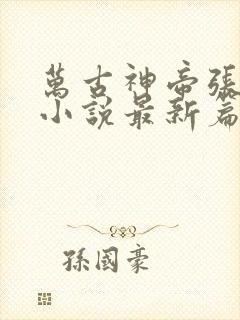 萬古神帝張
小說最新篇
孫國豪